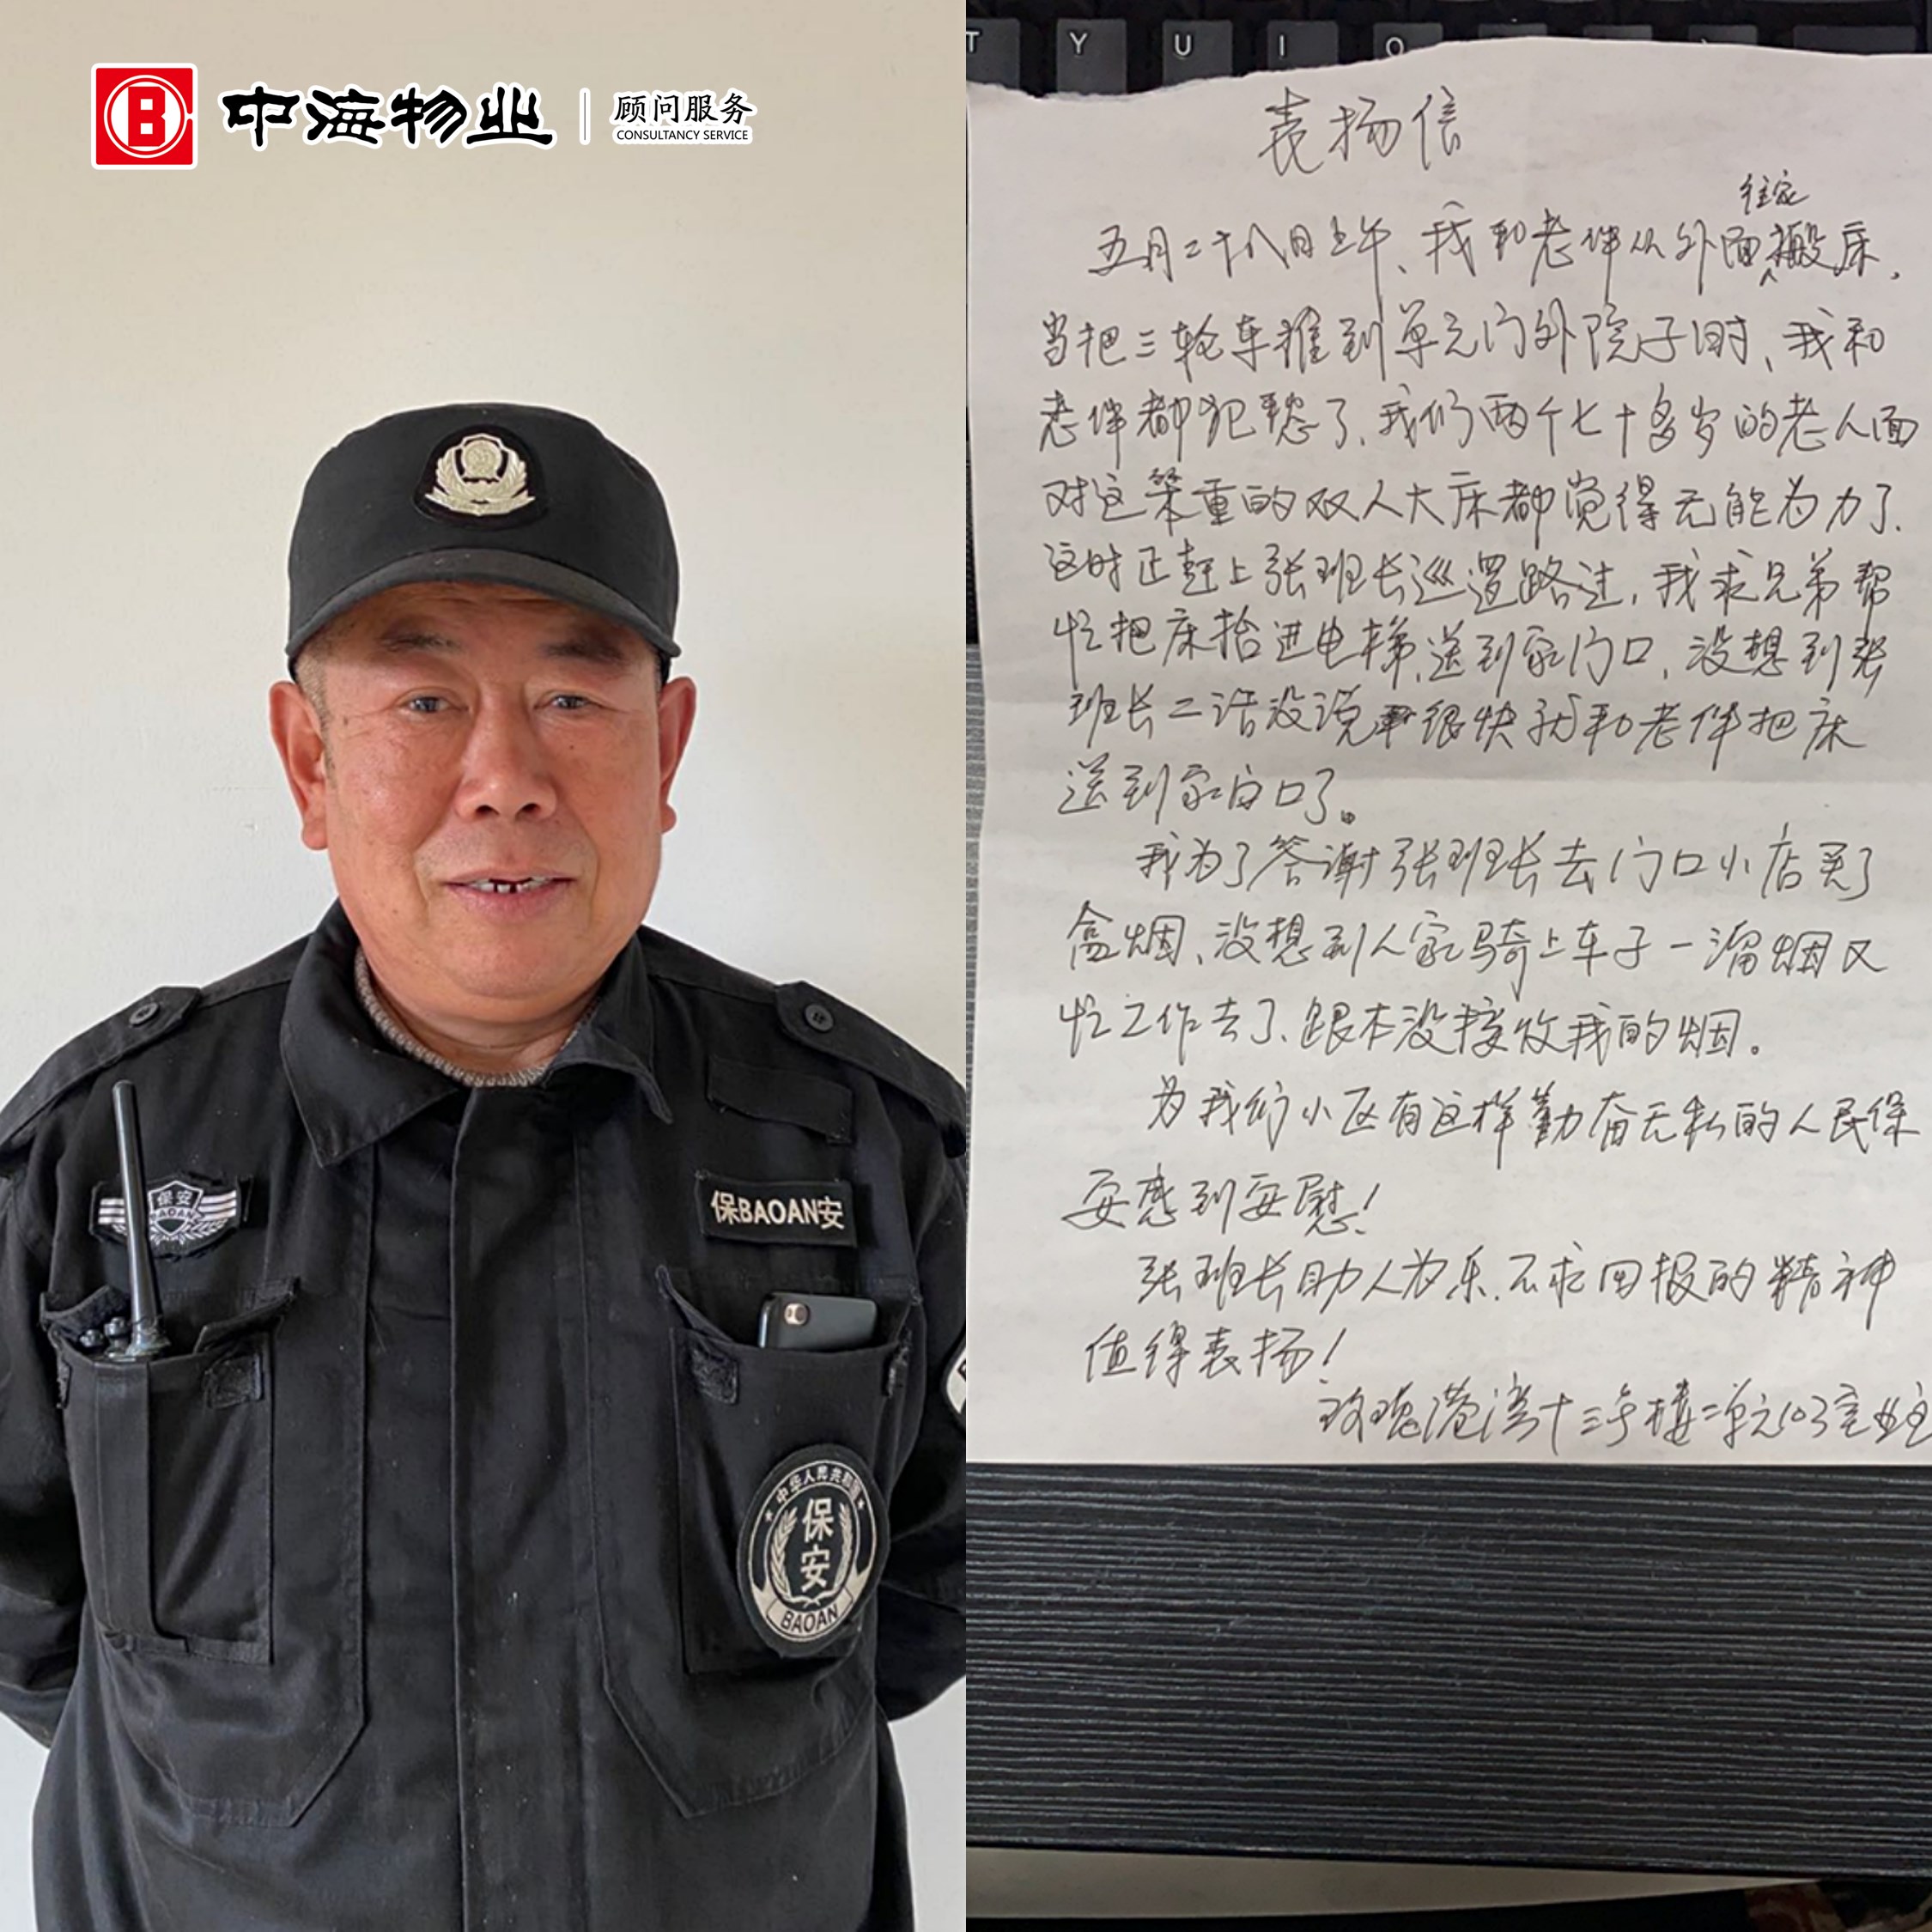 中海物业
顾问服务
CONSULTANCY SERVICE
保安
BAOAN
保BAOAN安
中华人民共和国
保
安
BAOAN
T Y U I O
表扬信
往家
五月二十八日上午、我和老伴从外面搬床,
当把三轮车推到单元门外院子时、我和
老伴都犯愁了、我们两个七十多岁的老人面
对这笨重的双人大床都觉得无能为力了.
这时正赶上张班长巡逻路过,我求兄弟帮
忙把床抬进电梯,送到家门口,没想到张
班长二话没说很快就和老伴把床
送到家门口了。
我为了答谢张班长去门口小店买了
盒烟、没想到人家骑上车子一溜烟又
忙工作去了、跟本没接收我的烟。
为我们小区有这样勤奋无私的人民保
安感到安慰!
张班长助人为乐.不求回报的精神
值得表扬!
玫瑰港湾十三号楼二单元103室业主